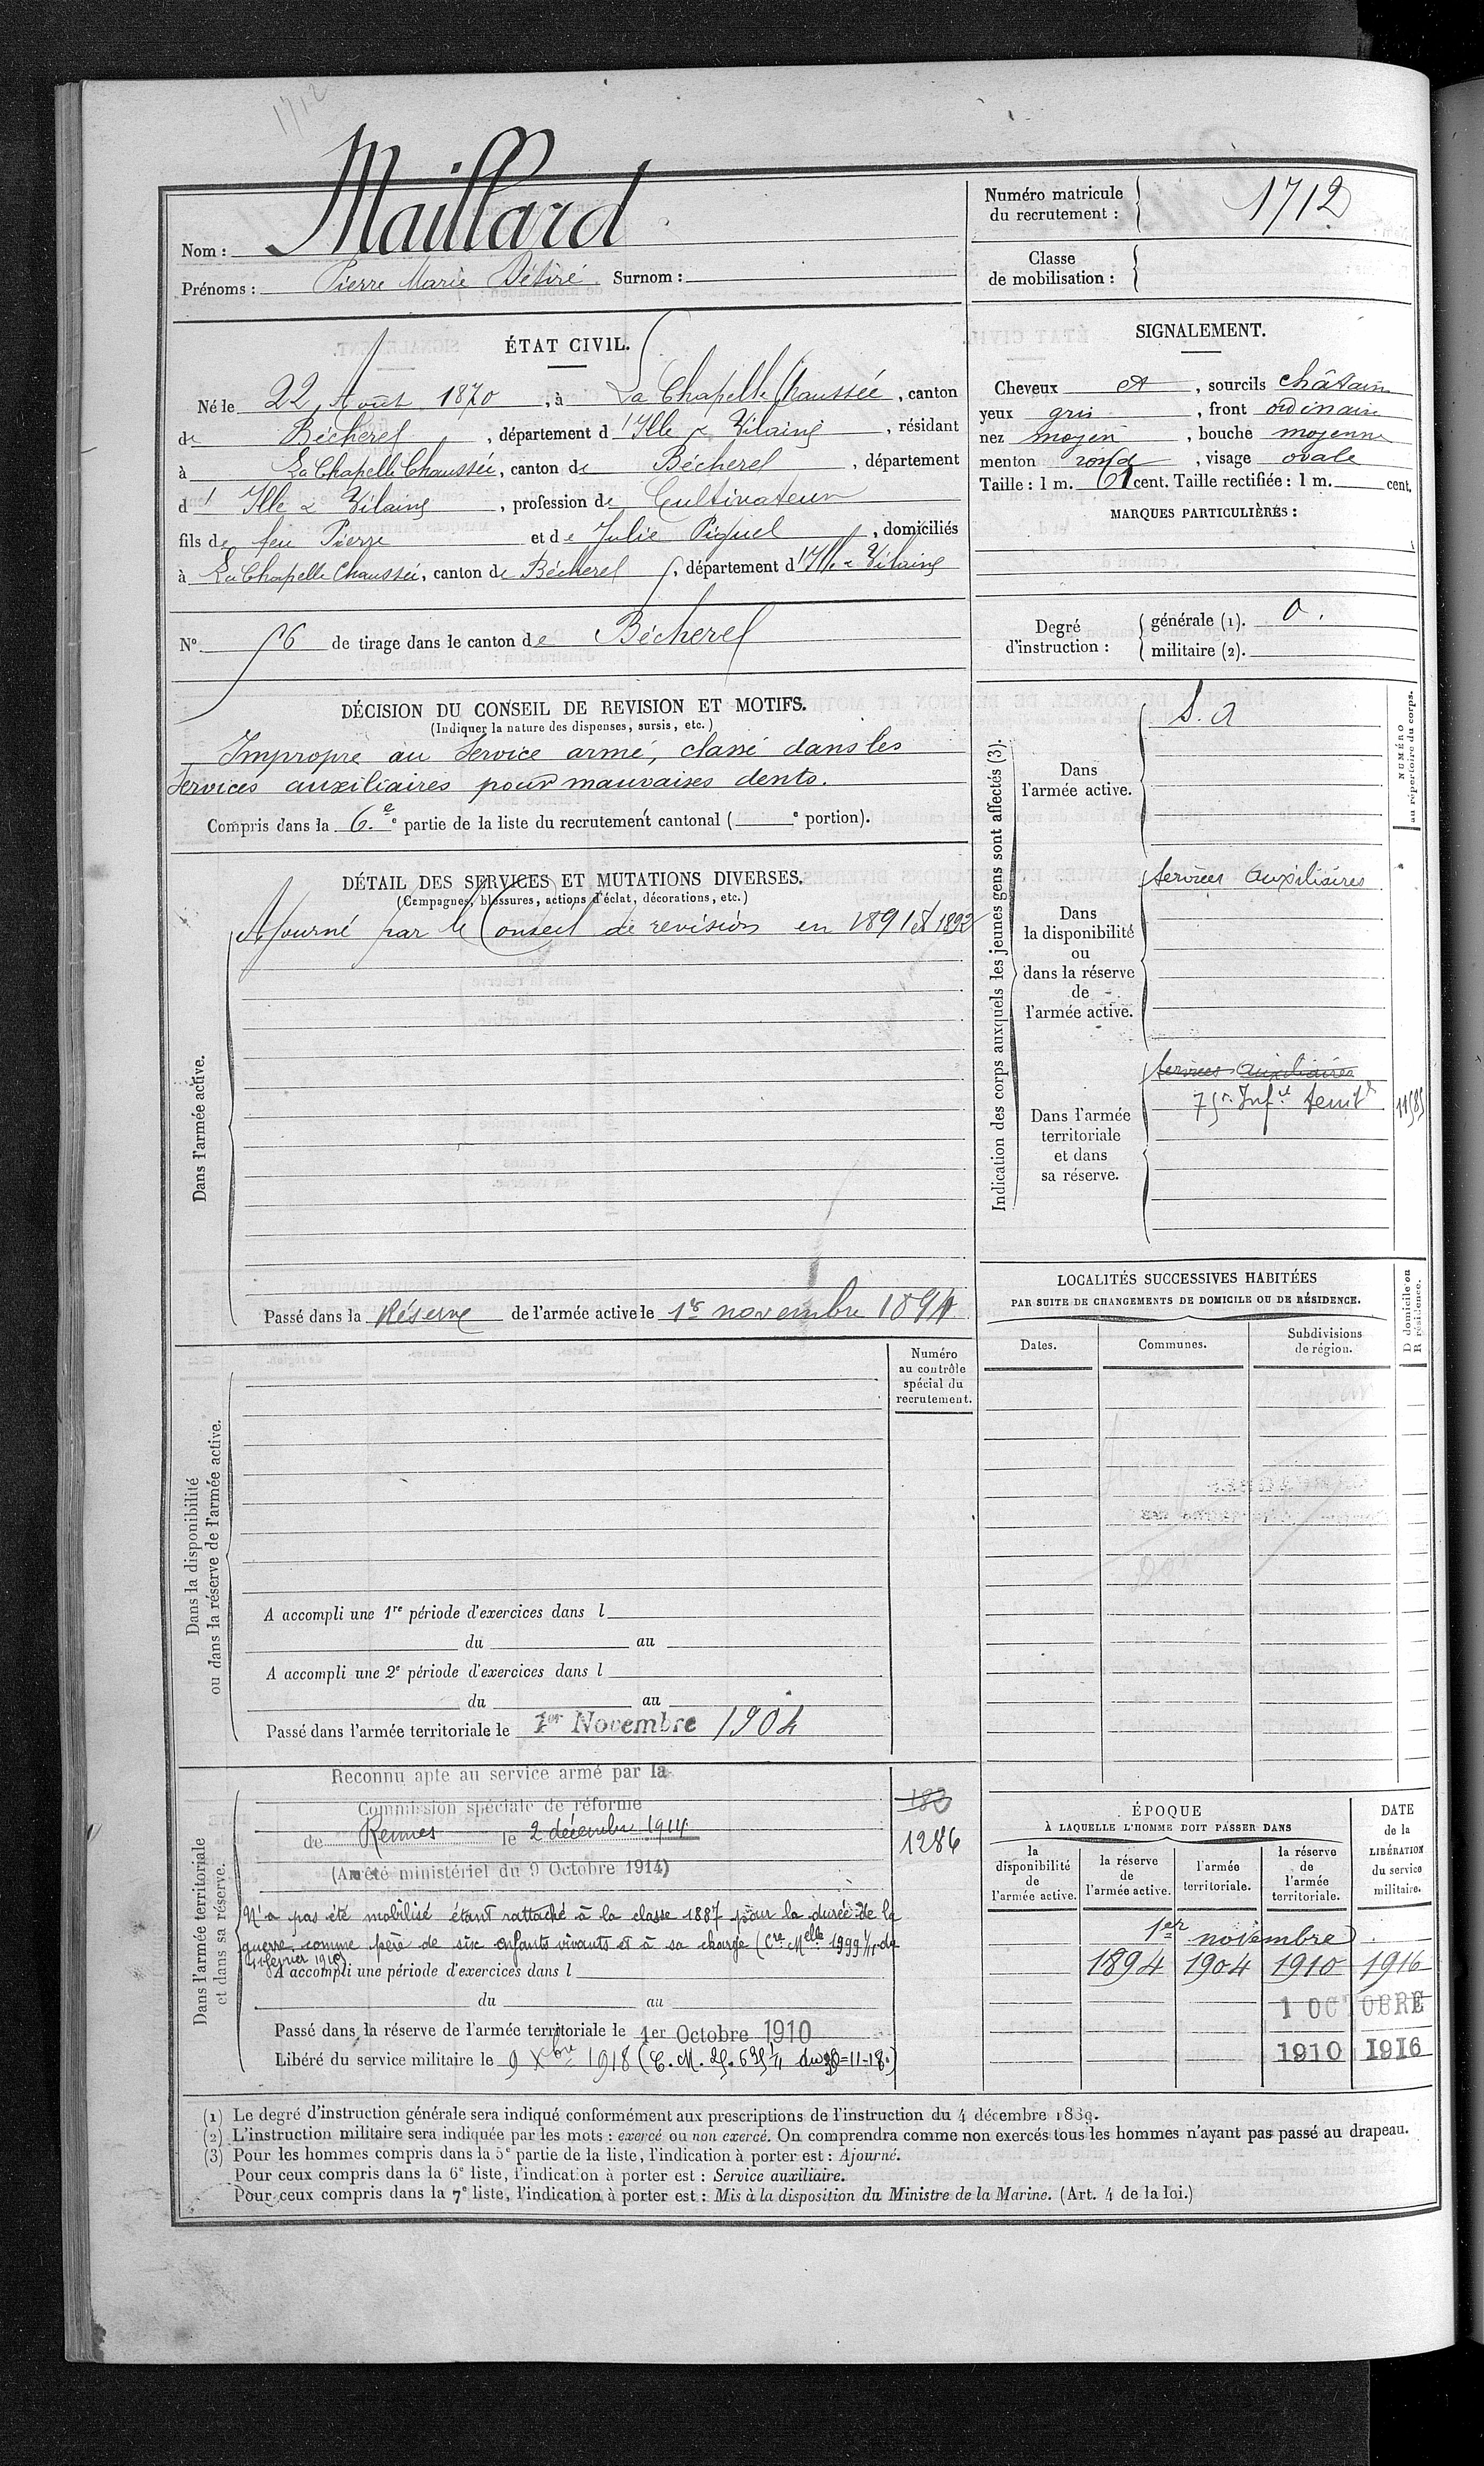 1712
Nom : Maillard
Prénoms : Pierre Marie Désiré Surnom :
Numéro matricule du recrutement : 1712
Classe de mobilisation :
ÉTAT CIVIL.
Né le 22 Août 1870, à La Chapelle Chaussée, canton
de Bécherel, département d'Ille & Vilaine, résidant
à La Chapelle Chaussée, canton de Bécherel, département
d' Ille & Vilaine, profession de Cultivateur
fils de feu Pierre et de Julie Piquel, domiciliés
à La Chapelle Chaussée, canton de Bécherel, département d'Ille & Vilaine
N° 56 de tirage dans le canton de Bécherel
SIGNALEMENT.
Cheveux et, sourcils châtain
yeux gris, front ordinaire
nez moyen, bouche moyenne
menton rond, visage ovale
Taille : 1 m. 61 cent. Taille rectifiée : 1 m. cent.
MARQUES PARTICULIÈRES :
Degré d'instruction : générale (1). 0.
militaire (2).
DÉCISION DU CONSEIL DE REVISION ET MOTIFS.
(Indiquer la nature des dispenses, sursis, etc.)
Impropre au Service armé, classé dans les
Services auxiliaires pour mauvaises dents.
Compris dans la 6.e e partie de la liste du recrutement cantonal ( e portion).
DÉTAIL DES SERVICES ET MUTATIONS DIVERSES.
(Campagnes, blessures, actions d'éclat, décorations, etc.)
Dans l'armée active.
Ajourné par le Conseil de revision en 1891 et 1892
Passé dans la Réserve de l'armée active le 1er novembre 1894
Indication des corps auxquels les jeunes gens sont affectés (3).
NUMÉRO au répertoire du corps.
Dans l'armée active.
S. A
Dans la disponibilité ou dans la réserve de l'armée active.
Services Auxiliaires
Dans l'armée territoriale et dans sa réserve.
Services Auxiliaires
75e Infie territle
11585
LOCALITÉS SUCCESSIVES HABITÉES
PAR SUITE DE CHANGEMENTS DE DOMICILE OU DE RÉSIDENCE.
Dates. Communes. Subdivisions de région.
D domicile ou R résidence.
Dans la disponibilité
ou dans la réserve de l'armée active.
Numéro
au contrôle
spécial du
recrutement.
A accompli une 1re période d'exercices dans l
du au
A accompli une 2e période d'exercices dans l
du au
Passé dans l'armée territoriale le 1er Novembre 1904
Dans l'armée territoriale
et dans sa réserve.
Reconnu apte au service armé par la
Commission spéciale de réforme
de Rennes le 2 décembre 1914
(Arrêté ministériel du 9 Octobre 1914)
183
1286
N'a pas été mobilisé étant rattaché à la classe 1887 pour la durée de la
guerre comme père de six enfants vivants et à sa charge (Cre Melle 1999 1/11 du
février 1919)
A accompli une période d'exercices dans l
du au
Passé dans la réserve de l'armée territoriale le 1er Octobre 1910
Libéré du service militaire le 9 Xbre 1918 (C. M. du 30-11-18.)
ÉPOQUE
À LAQUELLE L'HOMME DOIT PASSER DANS
la disponibilité de l'armée active.
la réserve de l'armée active.
l'armée territoriale.
la réserve de l'armée territoriale.
DATE de la LIBÉRATION du service militaire.
1er novembre
1894 1904 1910 1916
1 OCTOBRE
1910 1916
(1) Le degré d'instruction générale sera indiqué conformément aux prescriptions de l'instruction du 4 décembre 1889.
(2) L'instruction militaire sera indiquée par les mots : exercé ou non exercé. On comprendra comme non exercés tous les hommes n'ayant pas passé au drapeau.
(3) Pour les hommes compris dans la 5e partie de la liste, l'indication à porter est : Ajourné.
Pour ceux compris dans la 6e liste, l'indication à porter est : Service auxiliaire.
Pour ceux compris dans la 7e liste, l'indication à porter est : Mis à la disposition du Ministre de la Marine. (Art. 4 de la loi.)